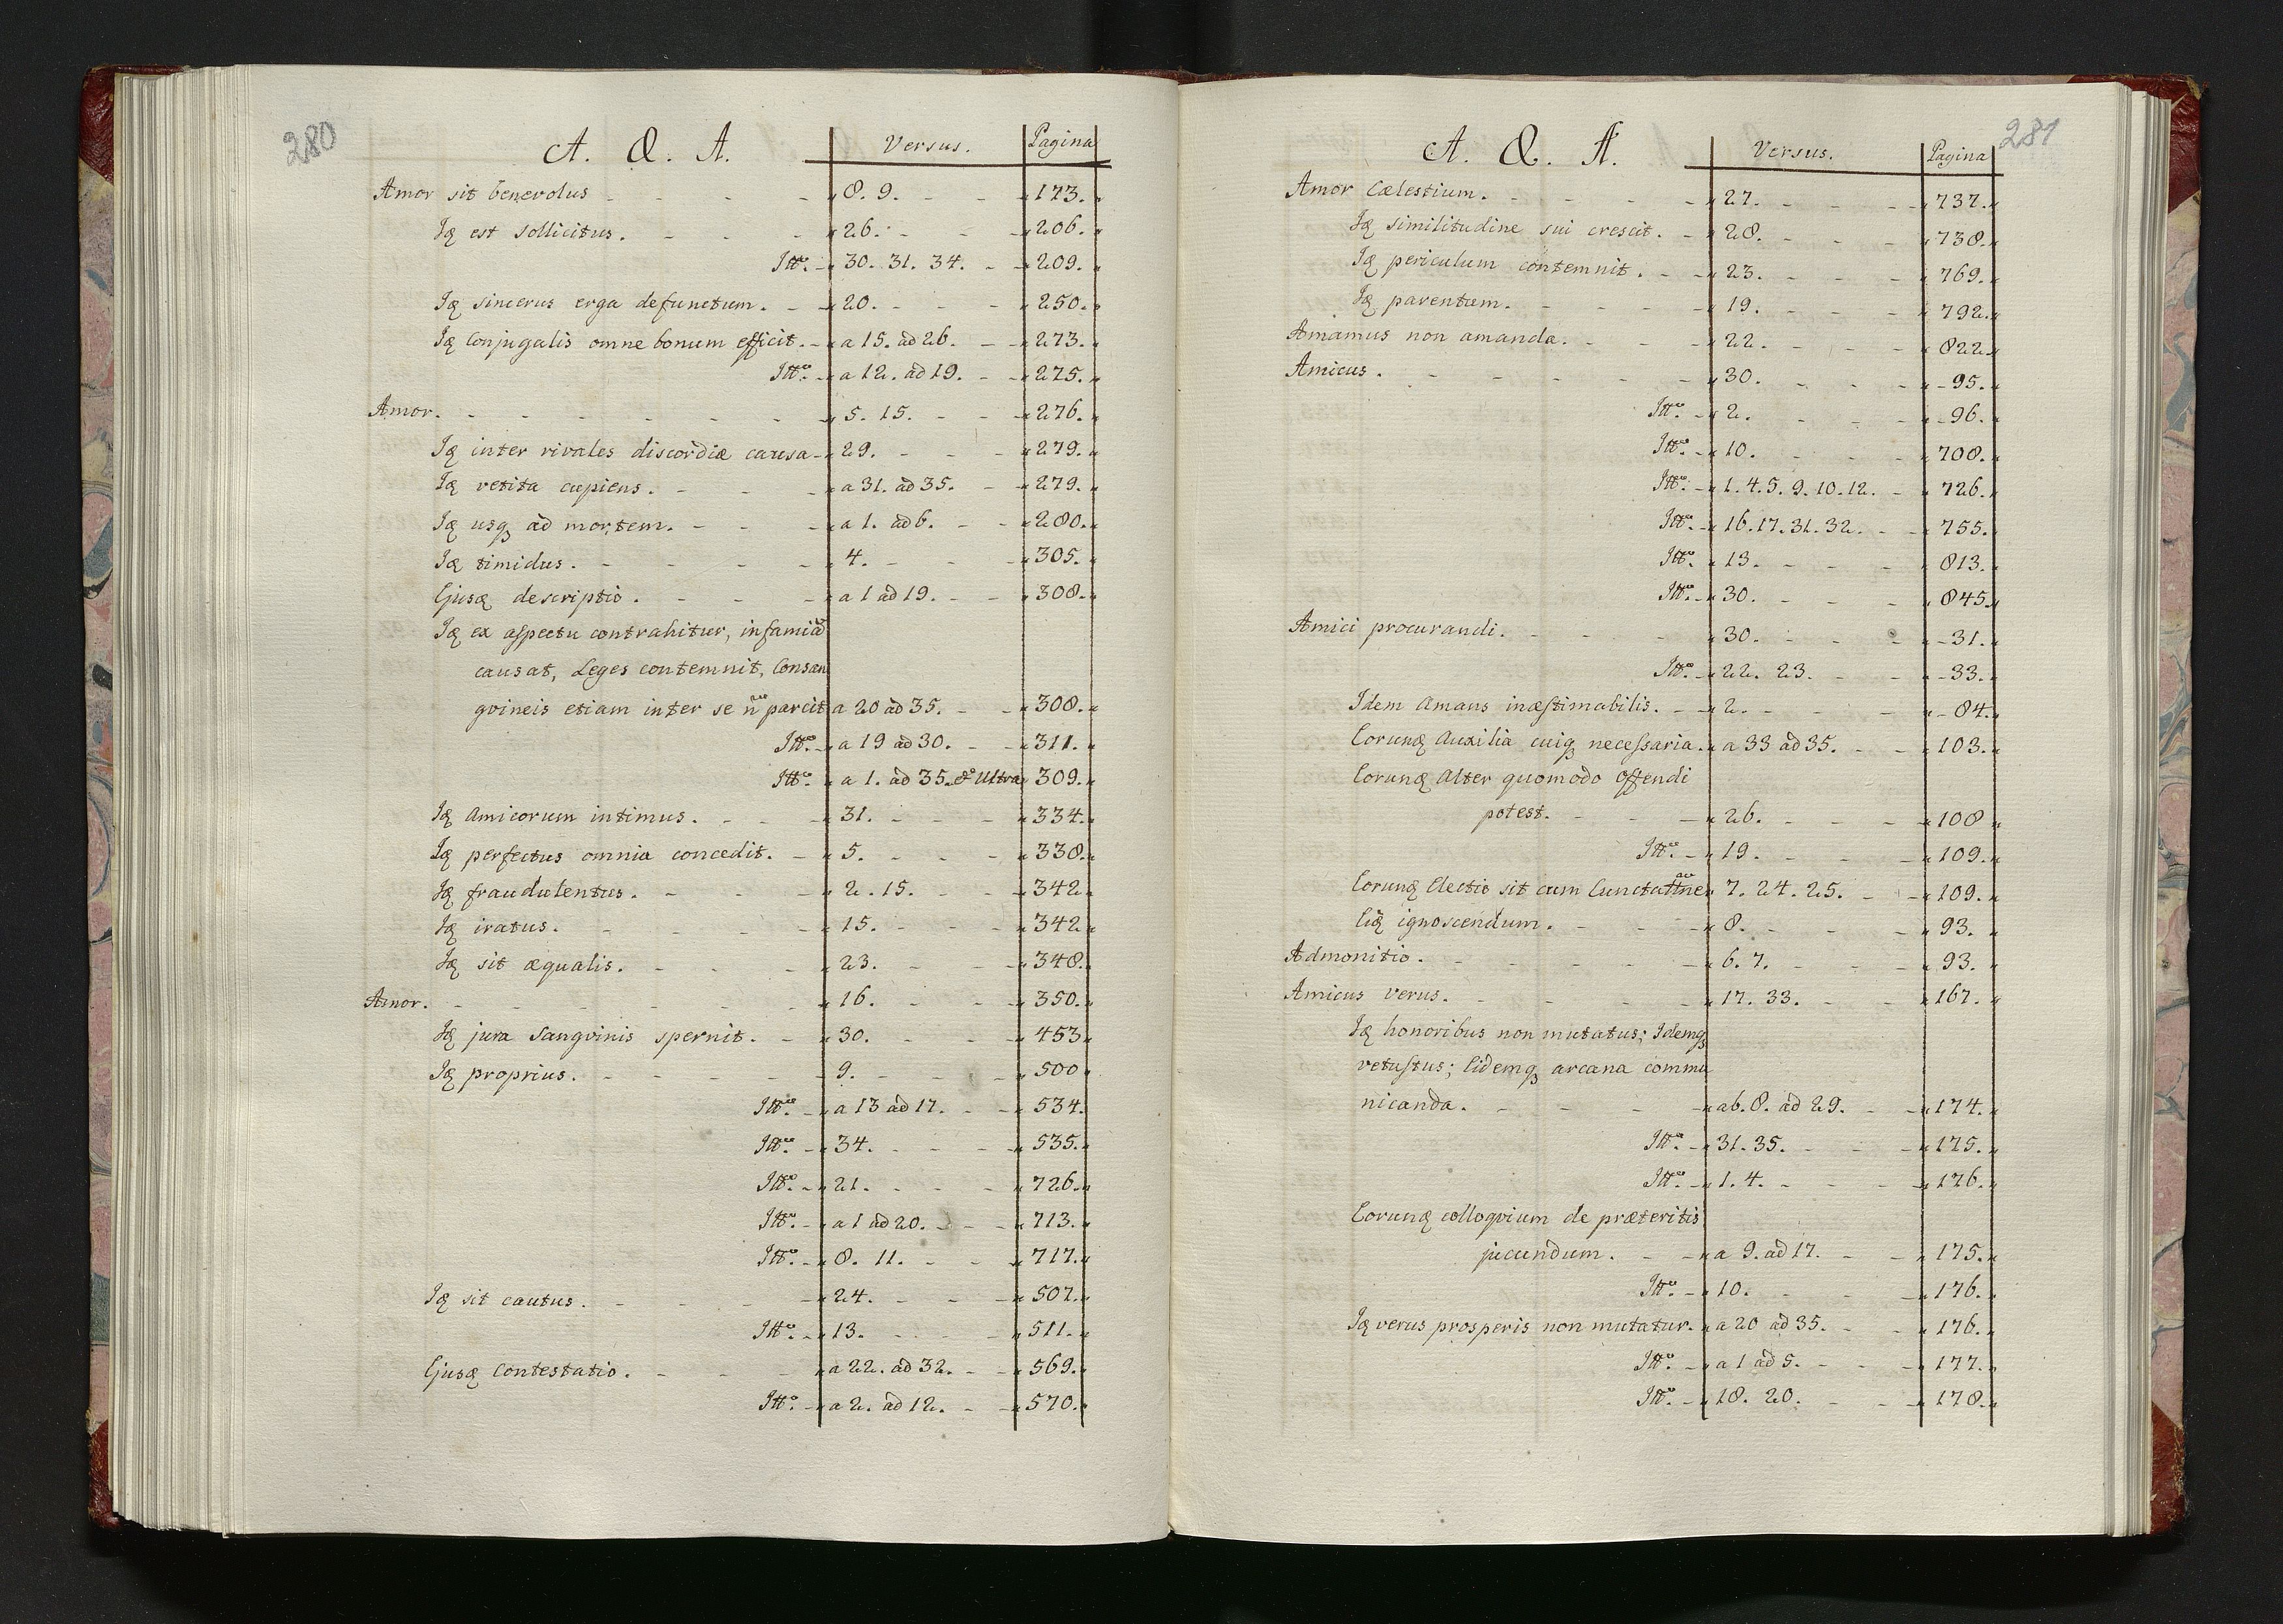 280
A. & A. Versus. Pagina
Amor sit benevolus - - - - 8. 9. - - 173.
Iꝗ est sollicitus. - - - 26. - - 206.
Itt.º - 30. 31. 34. - 209.
Iꝗ sincerus erga defunctum. - - 20. - - - 250.
Iꝗ Conjugalis omne bonum efficit. - a 15. ad 26. - - 273.
Itt.º - a 12. ad 19. - - 275.
Amor. - - - - - - 5. 15. - - 276.
Iꝗ inter rivales discordiæ causa - 29. - - - 279.
Iꝗ vetita cupiens. - - - a 31. ad 35. - 279.
Iꝗ usꝗ ad mortem. - - - a 1. ad 6. - - 280.
Iꝗ timidus. - - - - 4. - - - 305.
Ejusꝗ descriptio. - - - a 1 ad 19. - - 308.
Iꝗ ex aspectu contrahitur, infamiã
causat, Leges contemnit, Consan
gvineis etiam inter se ñ parcit a 20 ad 35. - - 308.
Itt.º - a 19 ad 30. - - 311.
Itt.º - a 1. ad 35. & Ultra 309.
Iꝗ Amicorum intimus. - - - 31. - - - 334.
Iꝗ perfectus omnia concedit. - 5. - - - 338.
Iꝗ fraudulentus. - - - 2. 15. - - 342
Iꝗ iratus. - - - - 15. - - - 342
Iꝗ sit æqualis. - - - 23. - - - 348.
Amor. - - - - - - 16. - - - 350.
Iꝗ jura Sangvinis spernit. - 30. - - - 453
Iꝗ proprius. - - - - 9. - - - 500
Itt.º - a 13 ad 17. - - 534.
Itt.º - 34. - - - 535.
Itt.º - 21. - - - 726.
Itt.º - a 1 ad 20. - - 713.
Itt.º - 8. 11. - - 717.
Iꝗ sit cautus. - - - - 24. - - - 507.
Itt.º - 13. - - - 511.
Ejusꝗ Contestatio. - - - a 22. ad 32. - - 569.
Itt.º - a 2. ad 12. - - 570.
281
A. & A. Versus. Pagina
Amor Cælestium. - - - - 27. - - - 737.
Iꝗ similitudine sui crescit. - 28. - - - 738.
Iꝗ periculum contemnit. - - 23. - - - 769.
Iꝗ parentum. - - - - 19. - - - 792.
Amamus non amanda. - - - 22. - - - 822.
Amicus. - - - - - - 30. - - - 95.
Itt.º - 2. - - - 96.
Itt.º - 10. - - - 708.
Itt.º - 1. 4. 5. 9. 10. 12. - 726.
Itt.º - 16. 17. 31. 32. - - 755.
Itt.º 13. - - - 813.
Itt.º - 30. - - - 845.
Amici procurandi. - - - 30. - - - 31.
Itt.º - 22. 23. - - 33.
Idem Amans inæstimabilis. - - 2. - - - 84.
Eorunꝗ Auxilia cuiꝗ necessaria. - a 33 ad 35. - - 103.
Eorunꝗ Alter quomodo offendi
potest. - - - 26. - - - 108
Itt.º - 19. - - - 109.
Eorunꝗ Electio sit cum Cunctatne 7. 24. 25. - - 109.
Eiꝗ ignoscendum. - - - 8. - - - 93.
Admonitio. - - - - - 6. 7. - - - 93.
Amicus verus. - - - - 17. 33. - - 167.
Iꝗ honoribus non mutatus; Idemꝗ
vetustus; Eidemꝗ arcana commu
nicanda. - - - - ab. 8. ad 29. - - 174.
Itt.º - 31. 35. - - - 175.
Itt.º - 1. 4. - - - 176.
Eorunꝗ colloqvium de præteritis
jucundum. - - a 9. ad 17. - - 175.
Itt.º - 10. - - - 176.
Iꝗ verus prosperis non mutatur. - a 20 ad 35. - - 176.
Itt.º - a 1 ad 5. - - - 177.
Itt.º - 18. 20. - - - 178.